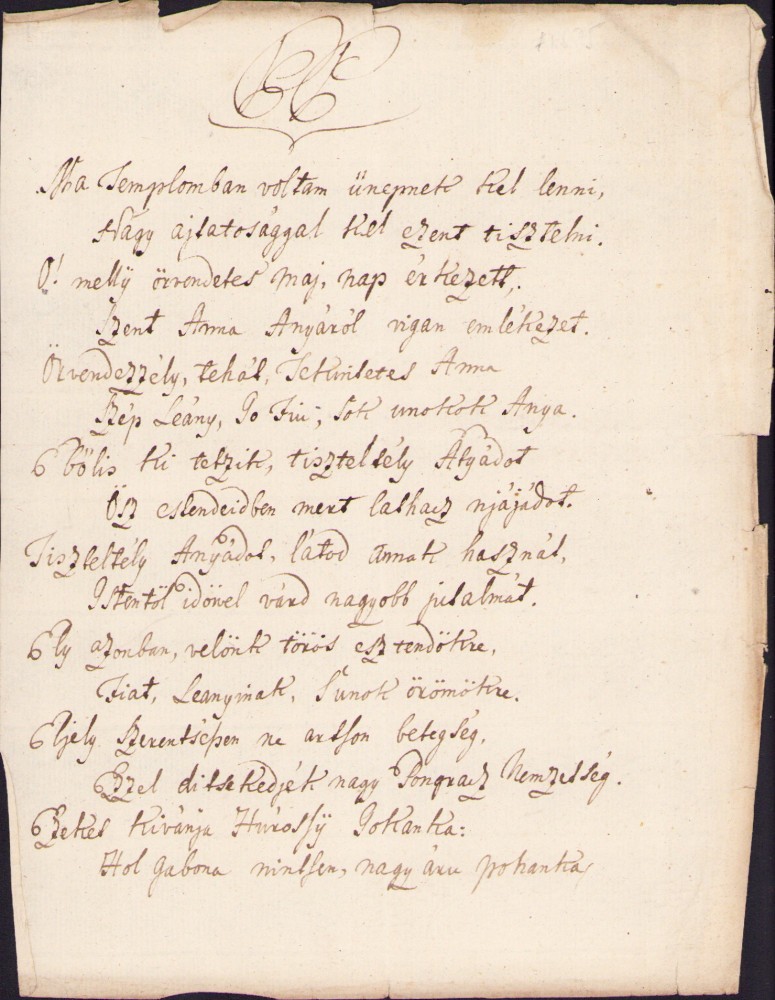 Ma Templomban voltam ünepnek kel lenni,
Nagy ajtatosággal kel ezent tisztelni.
O! melly örvendetes maj, nap érkezett,
Szent Anna Anyáról vigan emlékezet.
Örvendezzély, tehát, Tekintetes Anna
Szép Leány, Jo Fiu, sok unokok Anya.
Ebbölis ki tetzik, tisztelsély Atyádot
Ösz estendeidben mert lathacz njájádot.
Tiszteltély Anyádot, látod annak hasznát,
Istentöl idövel várd nagyobb jutalmát.
Ely azonban, velönk törös esztendökre,
Fiat, Leanyinak, Sunok örömökre.
Eljély Szerentsésen ne artson betegség,
Ezzel ditsekedjék nagy Pongracz Nemzetség.
Ezeket kivánja Hurossÿ Jokanka:
Hol gabona nintsen, nagy áru pohanka